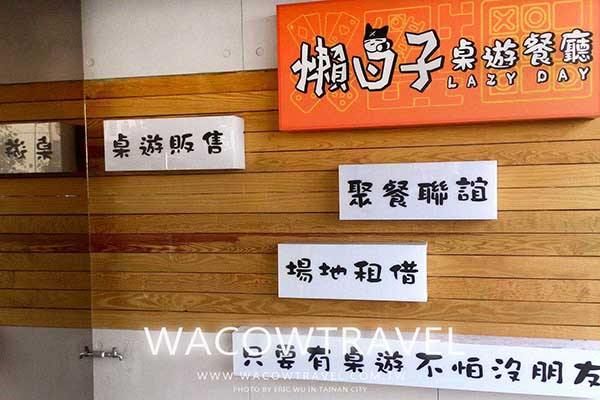 懶日子桌遊餐廳
LAZY DAY
桌遊
桌遊販售
聚餐聯誼
場地租借
WACOWTRAVEL
只要有桌遊不怕沒朋友
WWW.WACOWTRAVEL.COM.TW
PHOTO BY ERIC WU IN TAINAN CITY